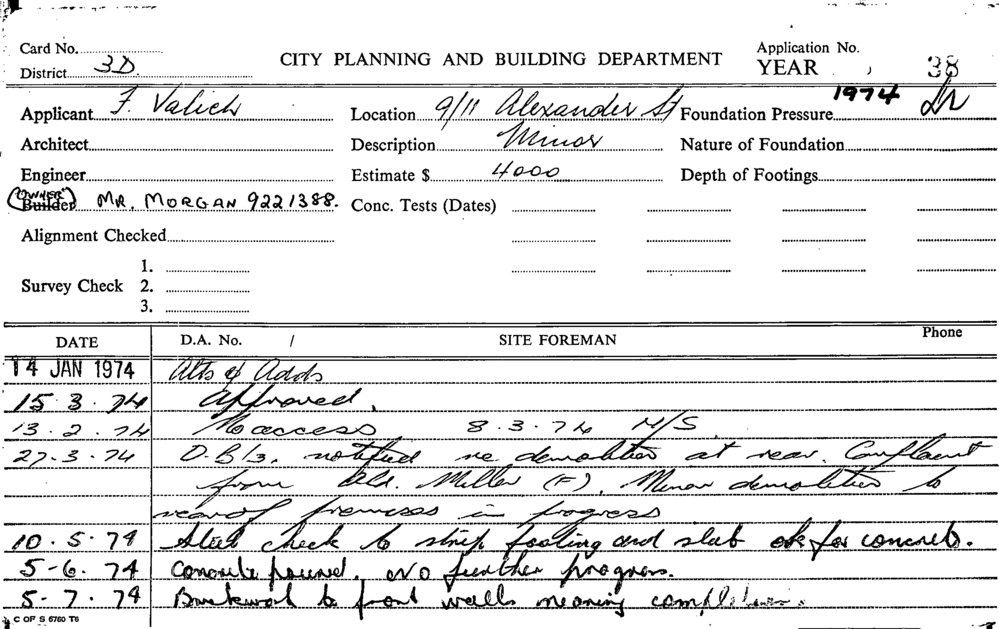 Card No.
District 3D
CITY PLANNING AND BUILDING DEPARTMENT
Application No.
YEAR , 38
1974
Applicant F. Valich
Location 9/11 Alexander St
Foundation Pressure
Architect
Description Minor
Nature of Foundation
Engineer
Estimate $ 4000
Depth of Footings
("OWNER") Builder MR. MORGAN 9221388.
Conc. Tests (Dates)
Alignment Checked
Survey Check
1.
2.
3.
DATE D.A. No. / SITE FOREMAN Phone
14 JAN 1974 Alts & Adds
15.3.74 Approved.
13.2.74 No access 8.3.74 N/S
27.3.74 notified re demolition at rear. Complaint
from Ald. Miller (F). Minor demolition to
rear of premises in progress
10.5.74 Steel check to strip footing and slab ok for concrete.
5-6.74 Concrete poured. No further progress.
5-7.74 Brickwork to front walls nearing completion.
C OF S 6760 T6